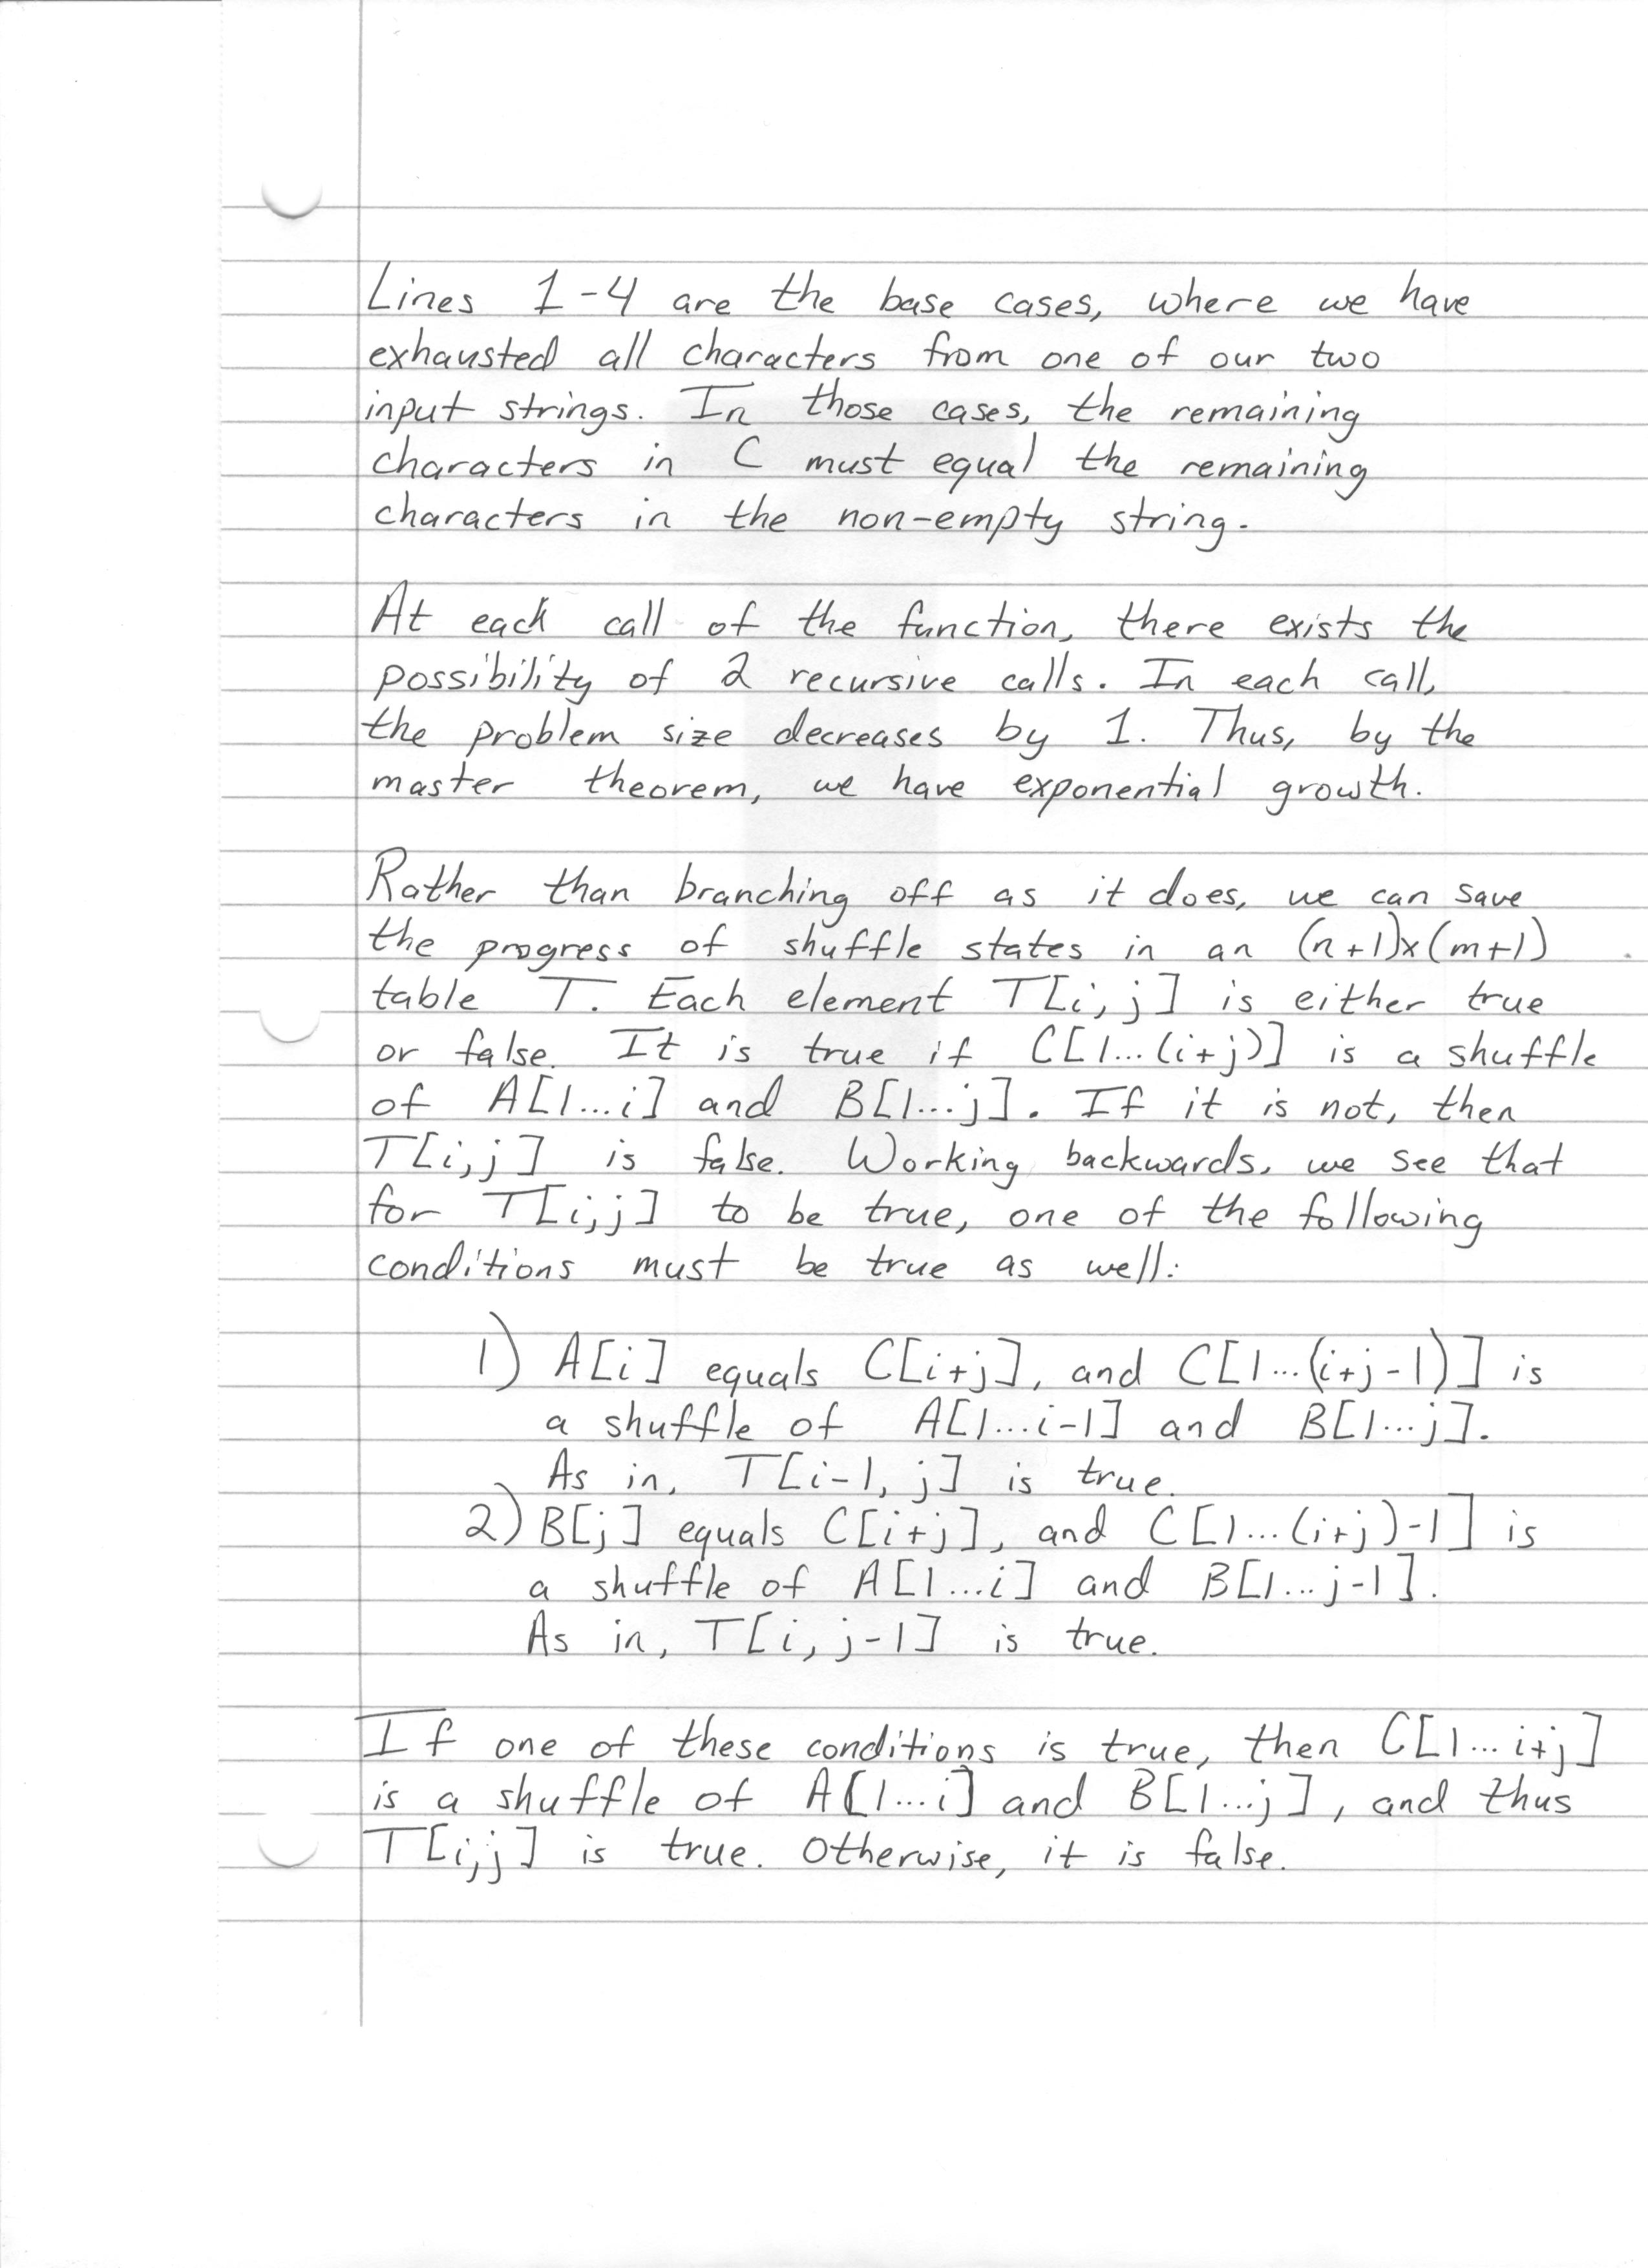 Lines 1-4 are the base cases, where we have
exhausted all characters from one of our two
input strings. In those cases, the remaining
characters in C must equal the remaining
characters in the non-empty string.
At each call of the function, there exists the
possibility of 2 recursive calls. In each call,
the problem size decreases by 1. Thus, by the
master theorem, we have exponential growth.
Rather than branching off as it does, we can save
the progress of shuffle states in an (n+1)x(m+1)
table T. Each element T[i,j] is either true
or false. It is true if C[1...(i+j)] is a shuffle
of A[1...i] and B[1...j]. If it is not, then
T[i,j] is false. Working backwards, we see that
for T[i,j] to be true, one of the following
conditions must be true as well:
1) A[i] equals C[i+j], and C[1...(i+j-1)] is
a shuffle of A[1...i-1] and B[1...j].
As in, T[i-1, j] is true.
2) B[j] equals C[i+j], and C[1...(i+j)-1] is
a shuffle of A[1...i] and B[1...j-1].
As in, T[i, j-1] is true.
If one of these conditions is true, then C[1...i+j]
is a shuffle of A[1...i] and B[1...j], and thus
T[i,j] is true. Otherwise, it is false.